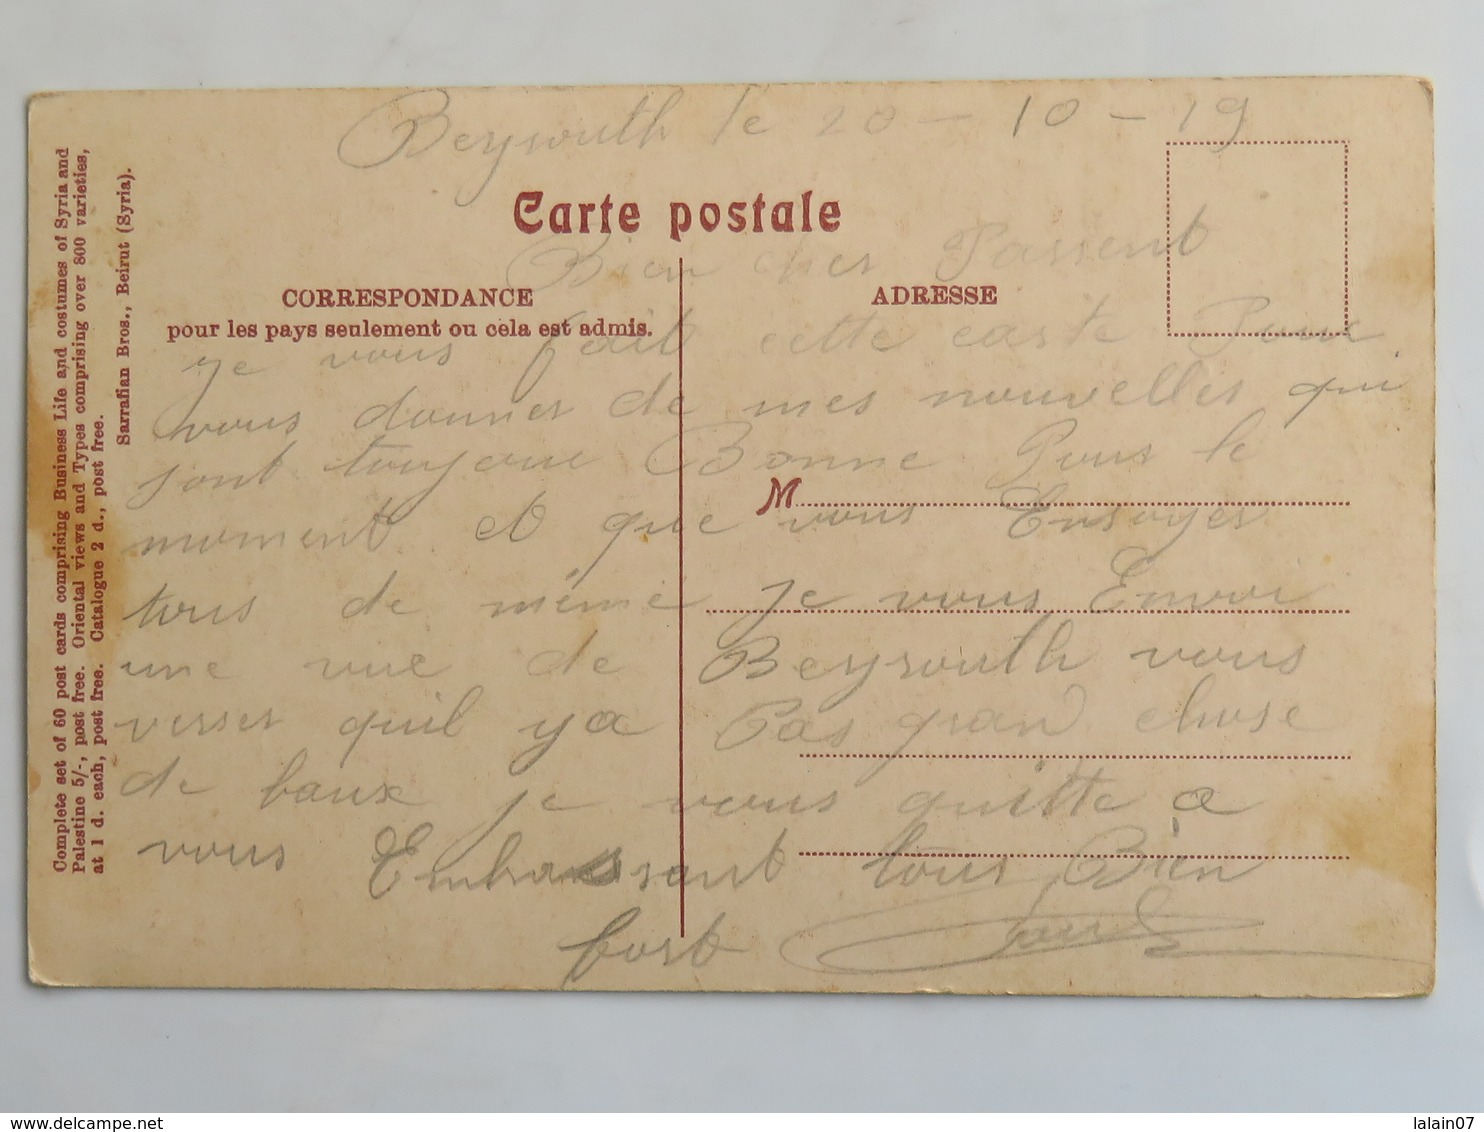 Beyrouth le 20 - 10 - 19
Carte postale
Bien cher Parrent
CORRESPONDANCE
pour les pays seulement ou cela est admis.
ADRESSE
je vous fait cette carte Pour
vous donner de mes nouvelles qui
sont toujour Bonne Pour le
M
moment et que vous Ensoyer
tous de même je vous Envoi
une vue de Beyrouth vous
verrer quil ya Pas gran chose
de baux je vous quitte a
vous Embrassant tous Bien
fort
Complete set of 60 post cards comprising Business Life and costumes of Syria and
Palestine 5/-, post free. Oriental views and Types comprising over 800 varieties,
at 1 d. each, post free. Catalogue 2 d., post free.
Sarrafian Bros., Beirut (Syria).
www.delcampe.net
lalain07